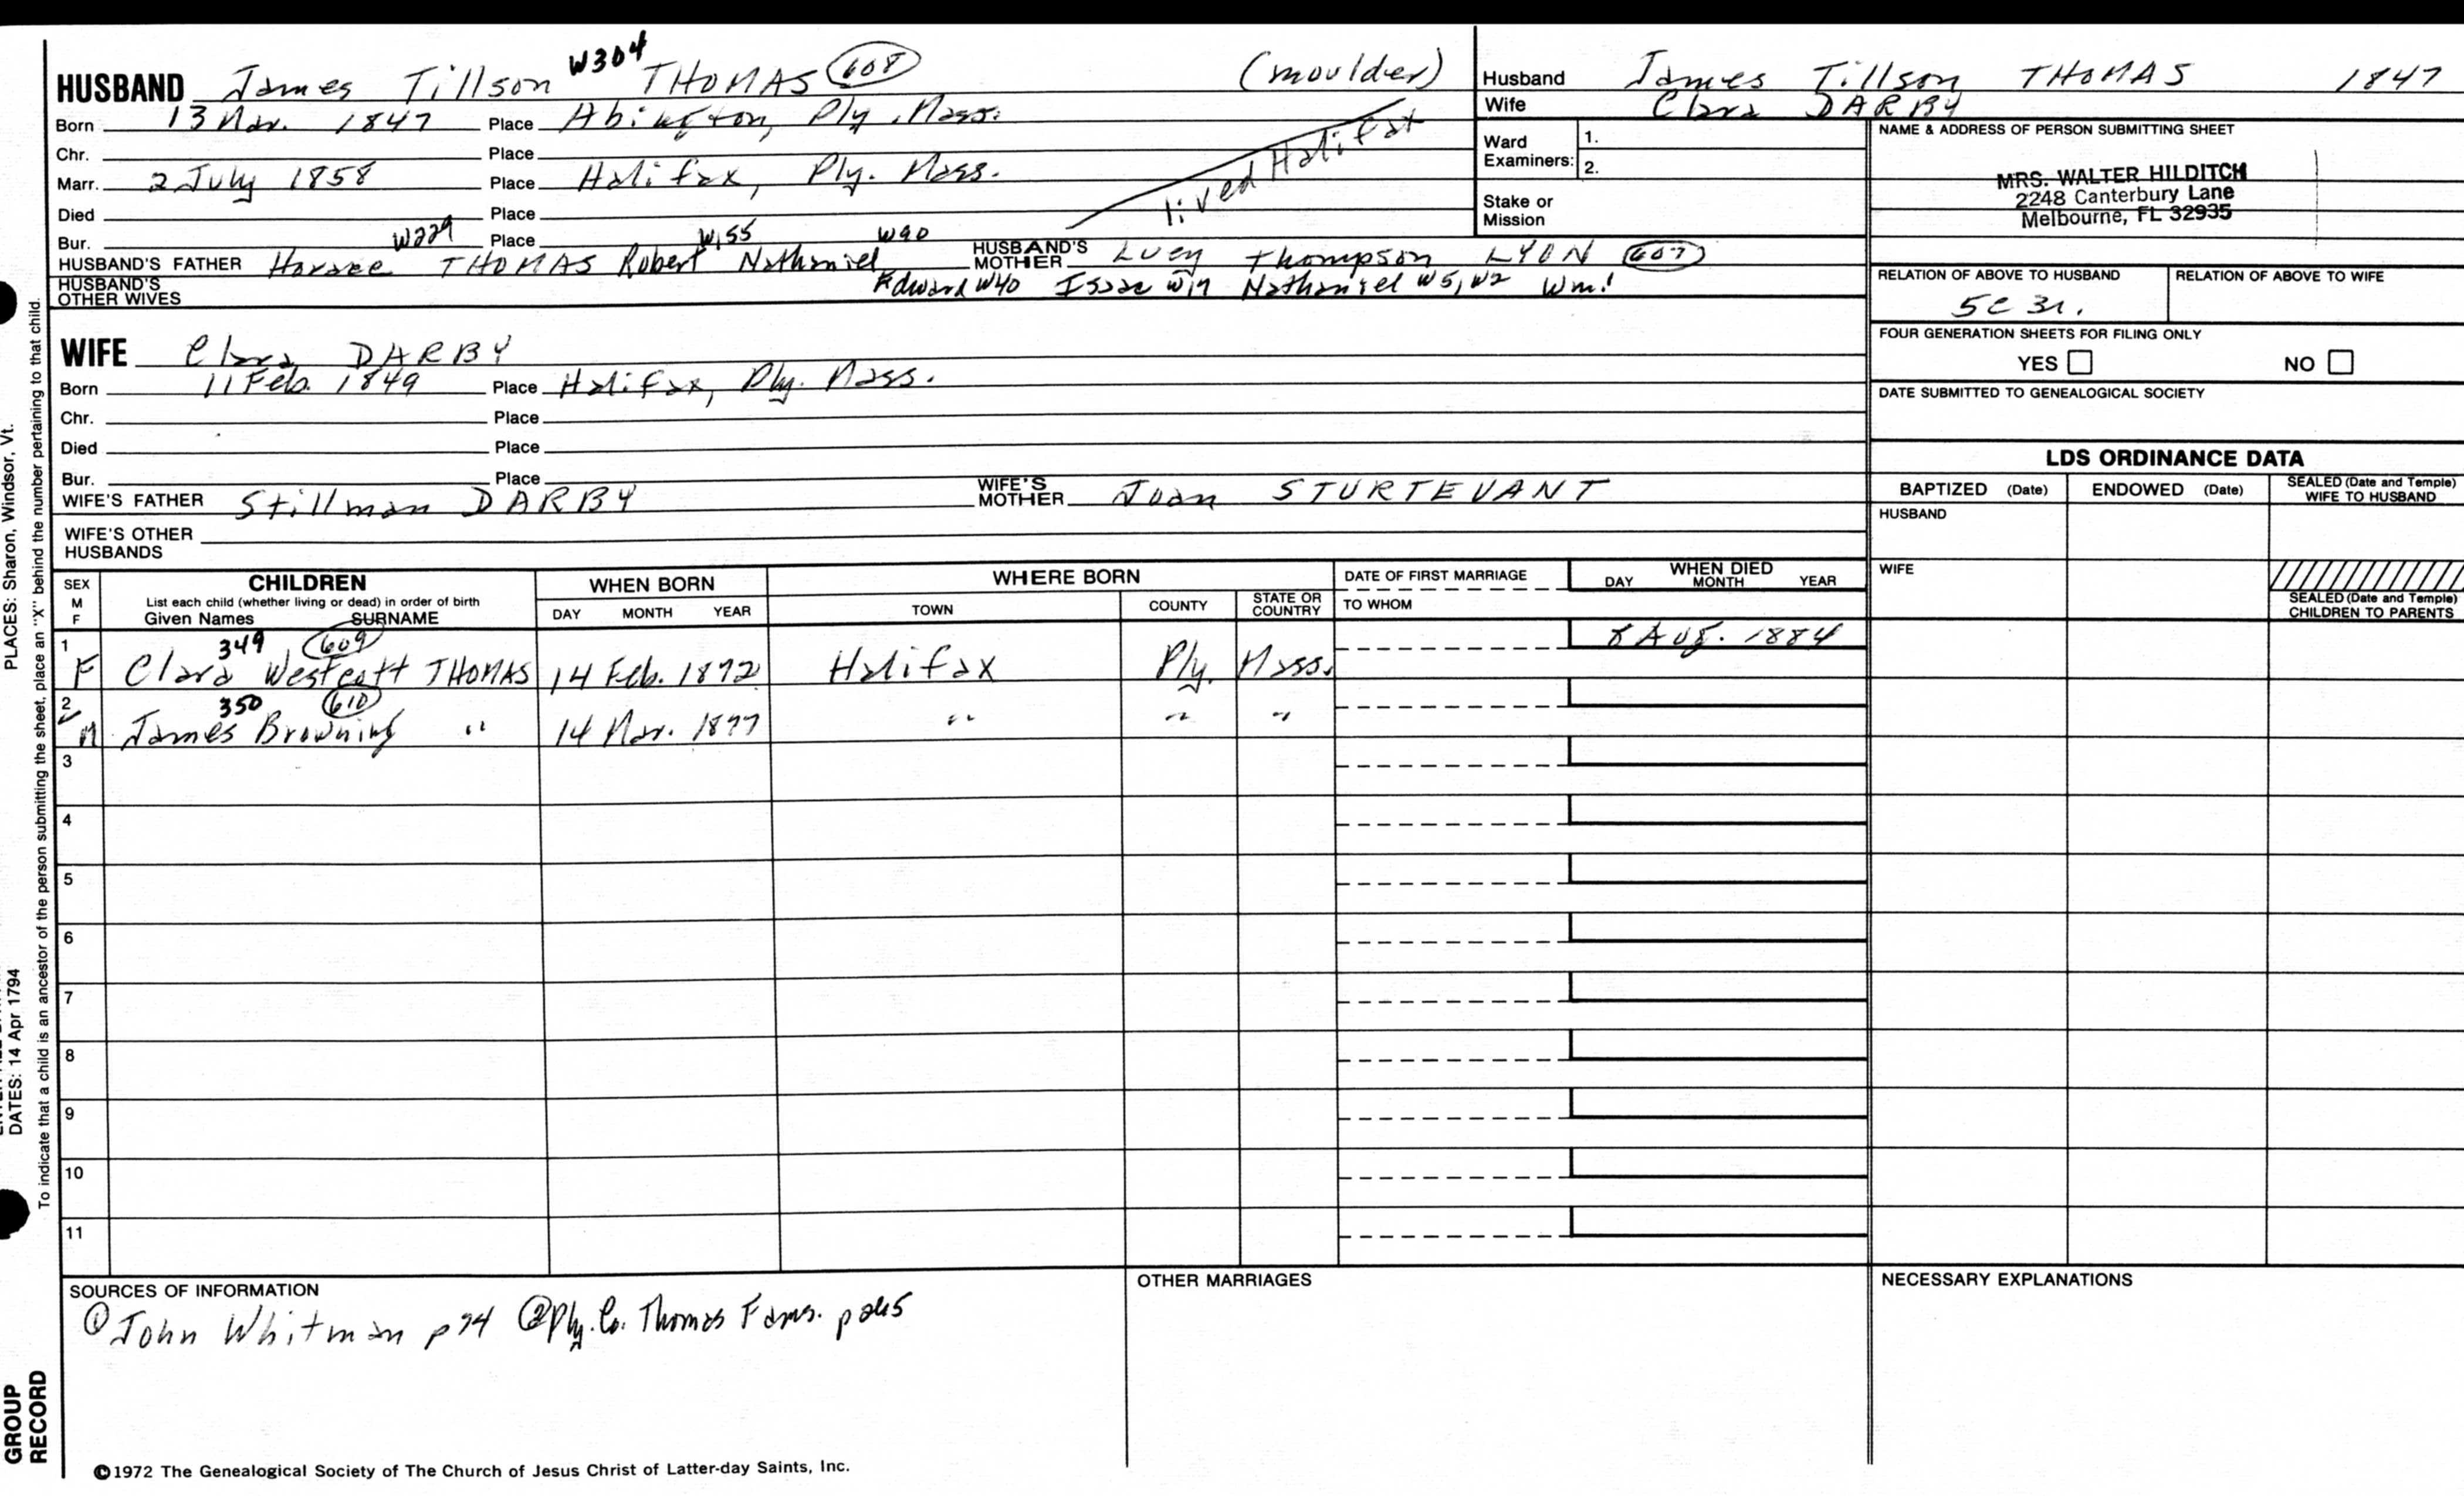 W304
HUSBAND James Tillson THOMAS 608 (moulder)
Born 13 Mar. 1847 Place Abington, Ply. Mass.
Chr. Place
Marr. 2 July 1858 Place Halifax, Ply. Mass.
lived Halifax
Died Place
Bur. Place
W229 W155 W90
HUSBAND'S FATHER Horace THOMAS Robert Nathaniel HUSBAND'S MOTHER Lucy Thompson LYON 607
HUSBAND'S OTHER WIVES Edward W40 Isaac W17 Nathaniel W5, W2 Wm.1
WIFE Clara DARBY
Born 11 Feb. 1849 Place Halifax, Ply. Mass.
Chr. Place
Died Place
Bur. Place
WIFE'S FATHER Stillman DARBY WIFE'S MOTHER Joan STURTEVANT
WIFE'S OTHER HUSBANDS
Husband James Tillson THOMAS 1847
Wife Clara DARBY
Ward Examiners: 1.
2.
Stake or Mission
NAME & ADDRESS OF PERSON SUBMITTING SHEET
MRS. WALTER HILDITCH
2248 Canterbury Lane
Melbourne, FL 32935
RELATION OF ABOVE TO HUSBAND RELATION OF ABOVE TO WIFE
5C 3r.
FOUR GENERATION SHEETS FOR FILING ONLY
YES NO
DATE SUBMITTED TO GENEALOGICAL SOCIETY
LDS ORDINANCE DATA
BAPTIZED (Date) ENDOWED (Date) SEALED (Date and Temple) WIFE TO HUSBAND
HUSBAND
WIFE
SEALED (Date and Temple) CHILDREN TO PARENTS
SEX M F
CHILDREN
List each child (whether living or dead) in order of birth
Given Names SURNAME
WHEN BORN
DAY MONTH YEAR
WHERE BORN
TOWN COUNTY STATE OR COUNTRY
DATE OF FIRST MARRIAGE
TO WHOM
WHEN DIED
DAY MONTH YEAR
349 609
1 F Clara Westcott THOMAS 14 Feb. 1872 Halifax Ply. Mass. 8 Aug. 1884
350 610
2 M James Browning " 14 Mar. 1877 " " "
3
4
5
6
7
8
9
10
11
SOURCES OF INFORMATION
① John Whitman p74 ② Ply. Co. Thomas Fams. p245
OTHER MARRIAGES
NECESSARY EXPLANATIONS
©1972 The Genealogical Society of The Church of Jesus Christ of Latter-day Saints, Inc.
PLACES: Sharon, Windsor, Vt.
DATES: 14 Apr 1794
To indicate that a child is an ancestor of the person submitting the sheet, place an "X" behind the number pertaining to that child.
GROUP
RECORD